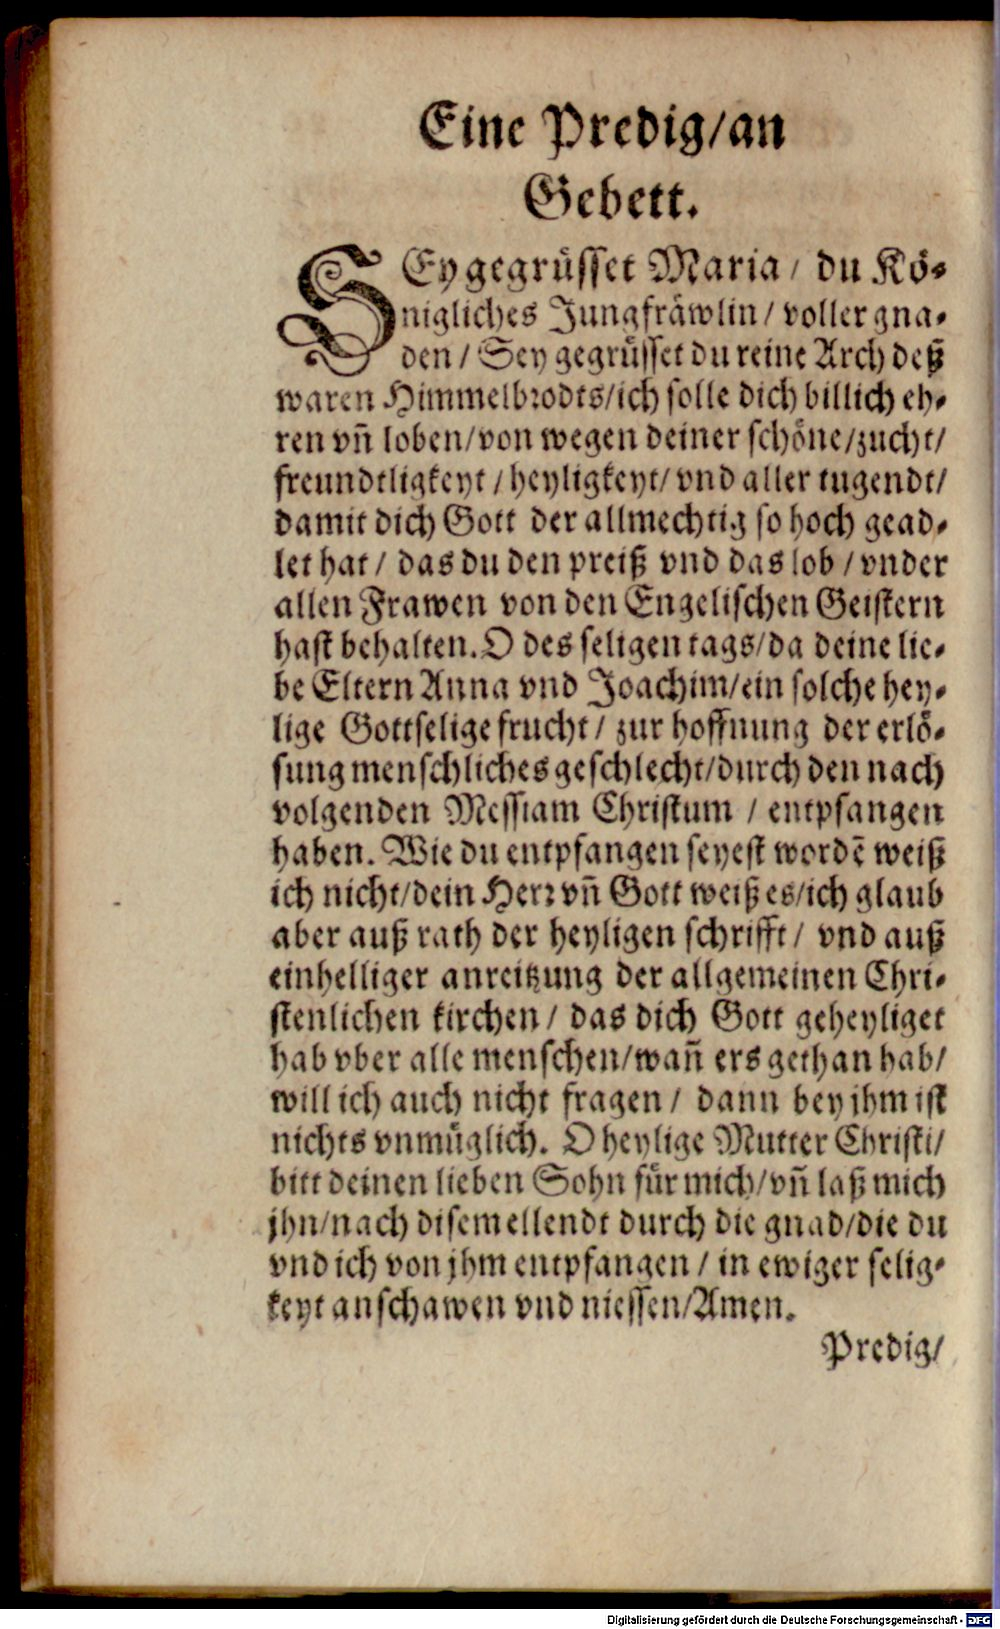 Eine Predig/an
Gebett.
SEy gegrüsset Maria/ du Kö-
nigliches Jungfräwlin/ voller gna-
den/ Sey gegrüsset du reine Arch deß
waren Himmelbrodts/ich solle dich billich eh-
ren vñ loben/von wegen deiner schöne/zucht/
freundtligkeyt/heyligkeyt/ vnd aller tugendt/
damit dich Gott der allmechtig so hoch gead-
let hat/ das du den preiß vnd das lob/vnder
allen Frawen von den Engelischen Geistern
hast behalten. O des seligen tags/da deine lie-
be Eltern Anna vnd Joachim/ein solche hey-
lige Gottselige frucht/ zur hoffnung der erlö-
sung menschliches geschlecht/durch den nach
volgenden Messiam Christum / entpfangen
haben. Wie du entpfangen seyest wordẽ weiß
ich nicht/dein Herr vñ Gott weiß es/ich glaub
aber auß rath der heyligen schrifft/ vnd auß
einhelliger anreitzung der allgemeinen Chri-
stenlichen kirchen/ das dich Gott geheyliget
hab vber alle menschen/wañ ers gethan hab/
will ich auch nicht fragen/ dann bey jhm ist
nichts vnmüglich. O heylige Mutter Christi/
bitt deinen lieben Sohn für mich/vñ laß mich
jhn/nach disem ellendt durch die gnad/die du
vnd ich von jhm entpfangen/ in ewiger selig-
keyt anschawen vnd niessen/Amen.
Predig/
Digitalisierung gefördert durch die Deutsche Forschungsgemeinschaft - DFG